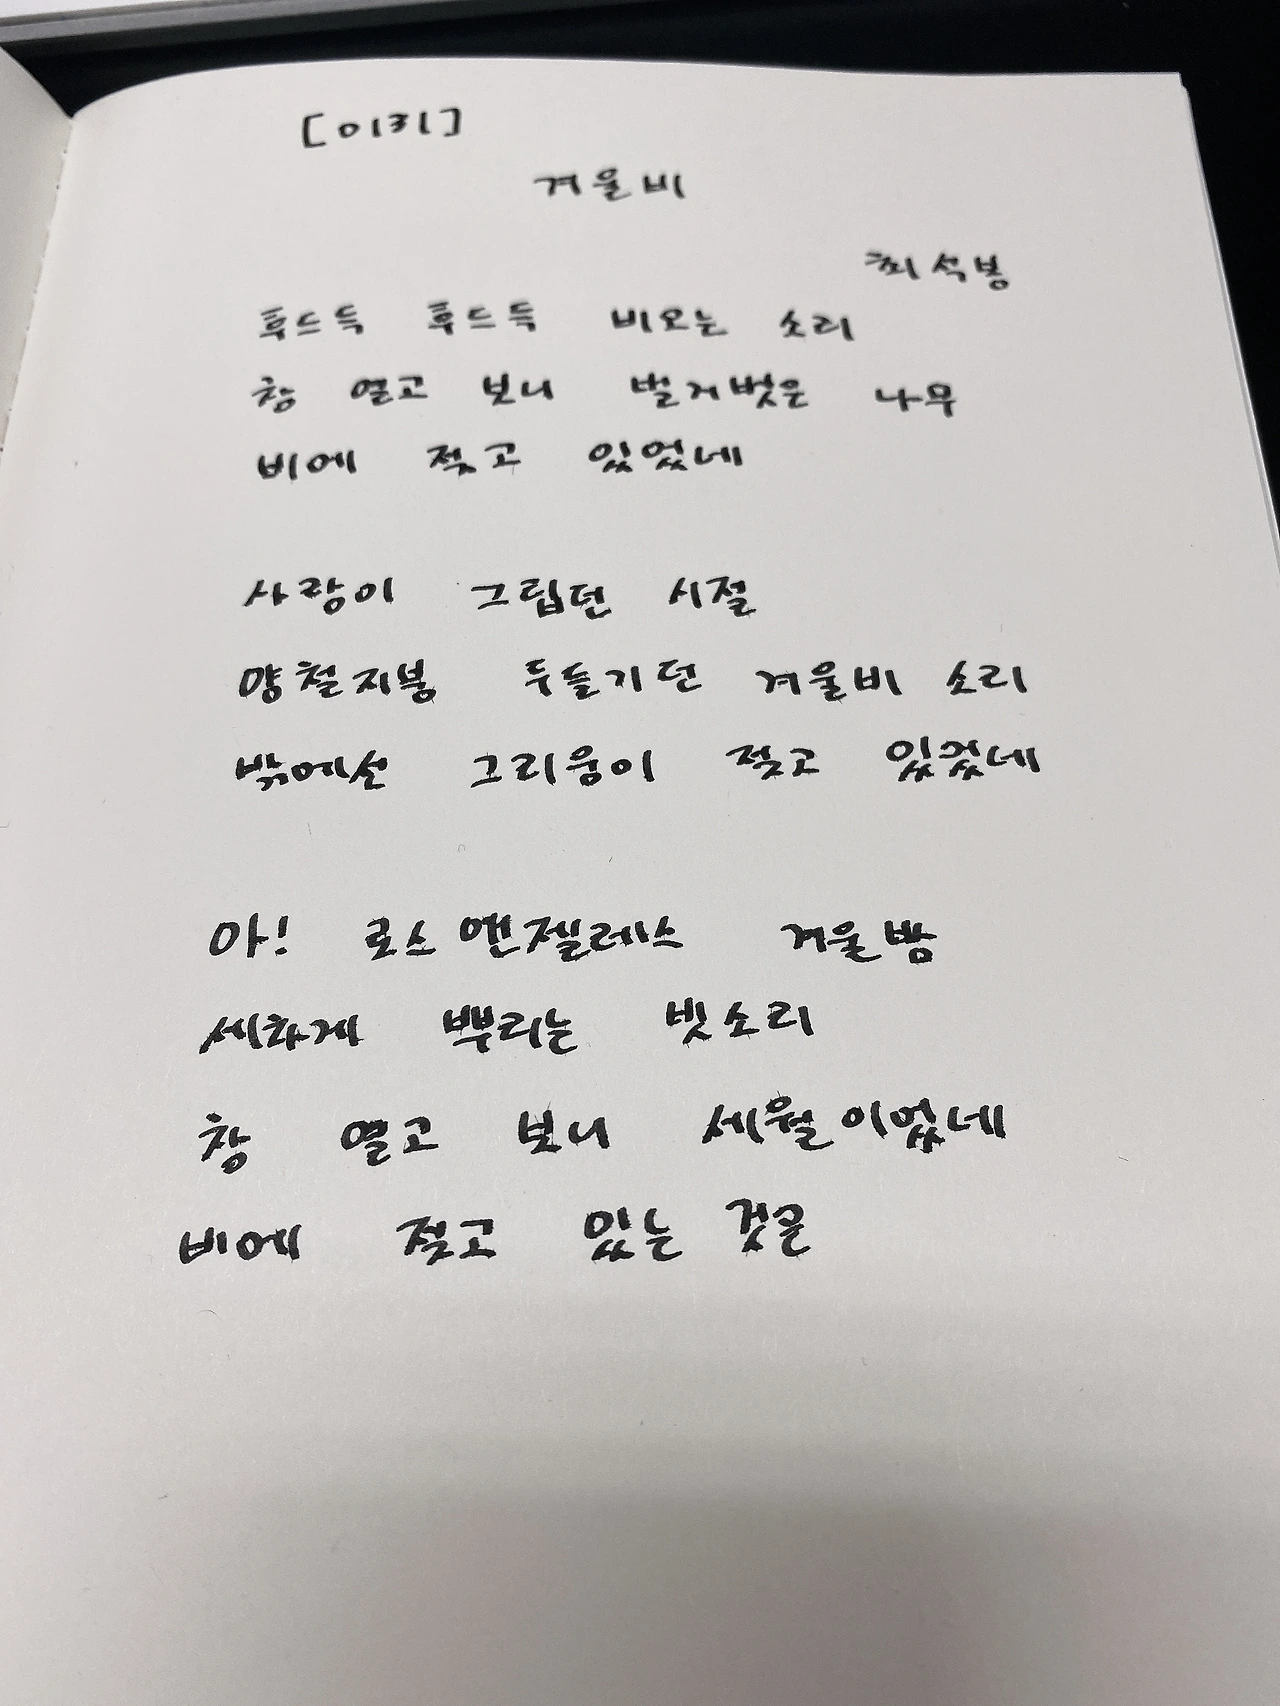 [이리]
겨울비
최석봉
후드득 후드득 비오는 소리
창 열고 보니 벌거벗은 나무
비에 젖고 있었네
사랑이 그립던 시절
양철지붕 두들기던 겨울비 소리
밖에선 그리움이 젖고 있었네
아! 로스앤젤레스 겨울밤
세차게 뿌리는 빗소리
창 열고 보니 세월이었네
비에 젖고 있는 것은